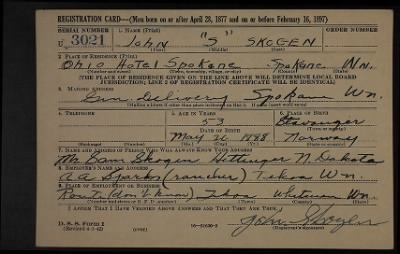 REGISTRATION CARD—(Men born on or after April 28, 1877 and on or before February 16, 1897)
SERIAL NUMBER 1. NAME (Print) ORDER NUMBER
U 3021 JOHN "S" SKOGEN
(First) (Middle) (Last)
2. PLACE OF RESIDENCE (Print)
Ohio Hotel Spokane Spokane Wn.
(Number and street) (Town, township, village, or city) (County) (State)
[THE PLACE OF RESIDENCE GIVEN ON THE LINE ABOVE WILL DETERMINE LOCAL BOARD
JURISDICTION; LINE 2 OF REGISTRATION CERTIFICATE WILL BE IDENTICAL]
3. MAILING ADDRESS
Gen Delivery Spokane Wn
[Mailing address if other than place indicated on line 2. If same insert word same]
4. TELEPHONE 5. AGE IN YEARS 6. PLACE OF BIRTH
53 Stavanger
DATE OF BIRTH (Town or county)
May 26 1888 Norway
(Exchange) (Number) (Mo.) (Day) (Yr.) (State or country)
7. NAME AND ADDRESS OF PERSON WHO WILL ALWAYS KNOW YOUR ADDRESS
Mr. Sam Skogen Hettinger N Dakota
8. EMPLOYER'S NAME AND ADDRESS
A A Sparks (rancher) Tekoa Wn.
9. PLACE OF EMPLOYMENT OR BUSINESS
Route (don't know) Tekoa Whitman Wn.
(Number and street or R. F. D. number) (Town) (County) (State)
I AFFIRM THAT I HAVE VERIFIED ABOVE ANSWERS AND THAT THEY ARE TRUE.
D. S. S. Form 1
(Revised 4-1-42) (over) 16-21630-2 John Skogen
(Registrant's signature)